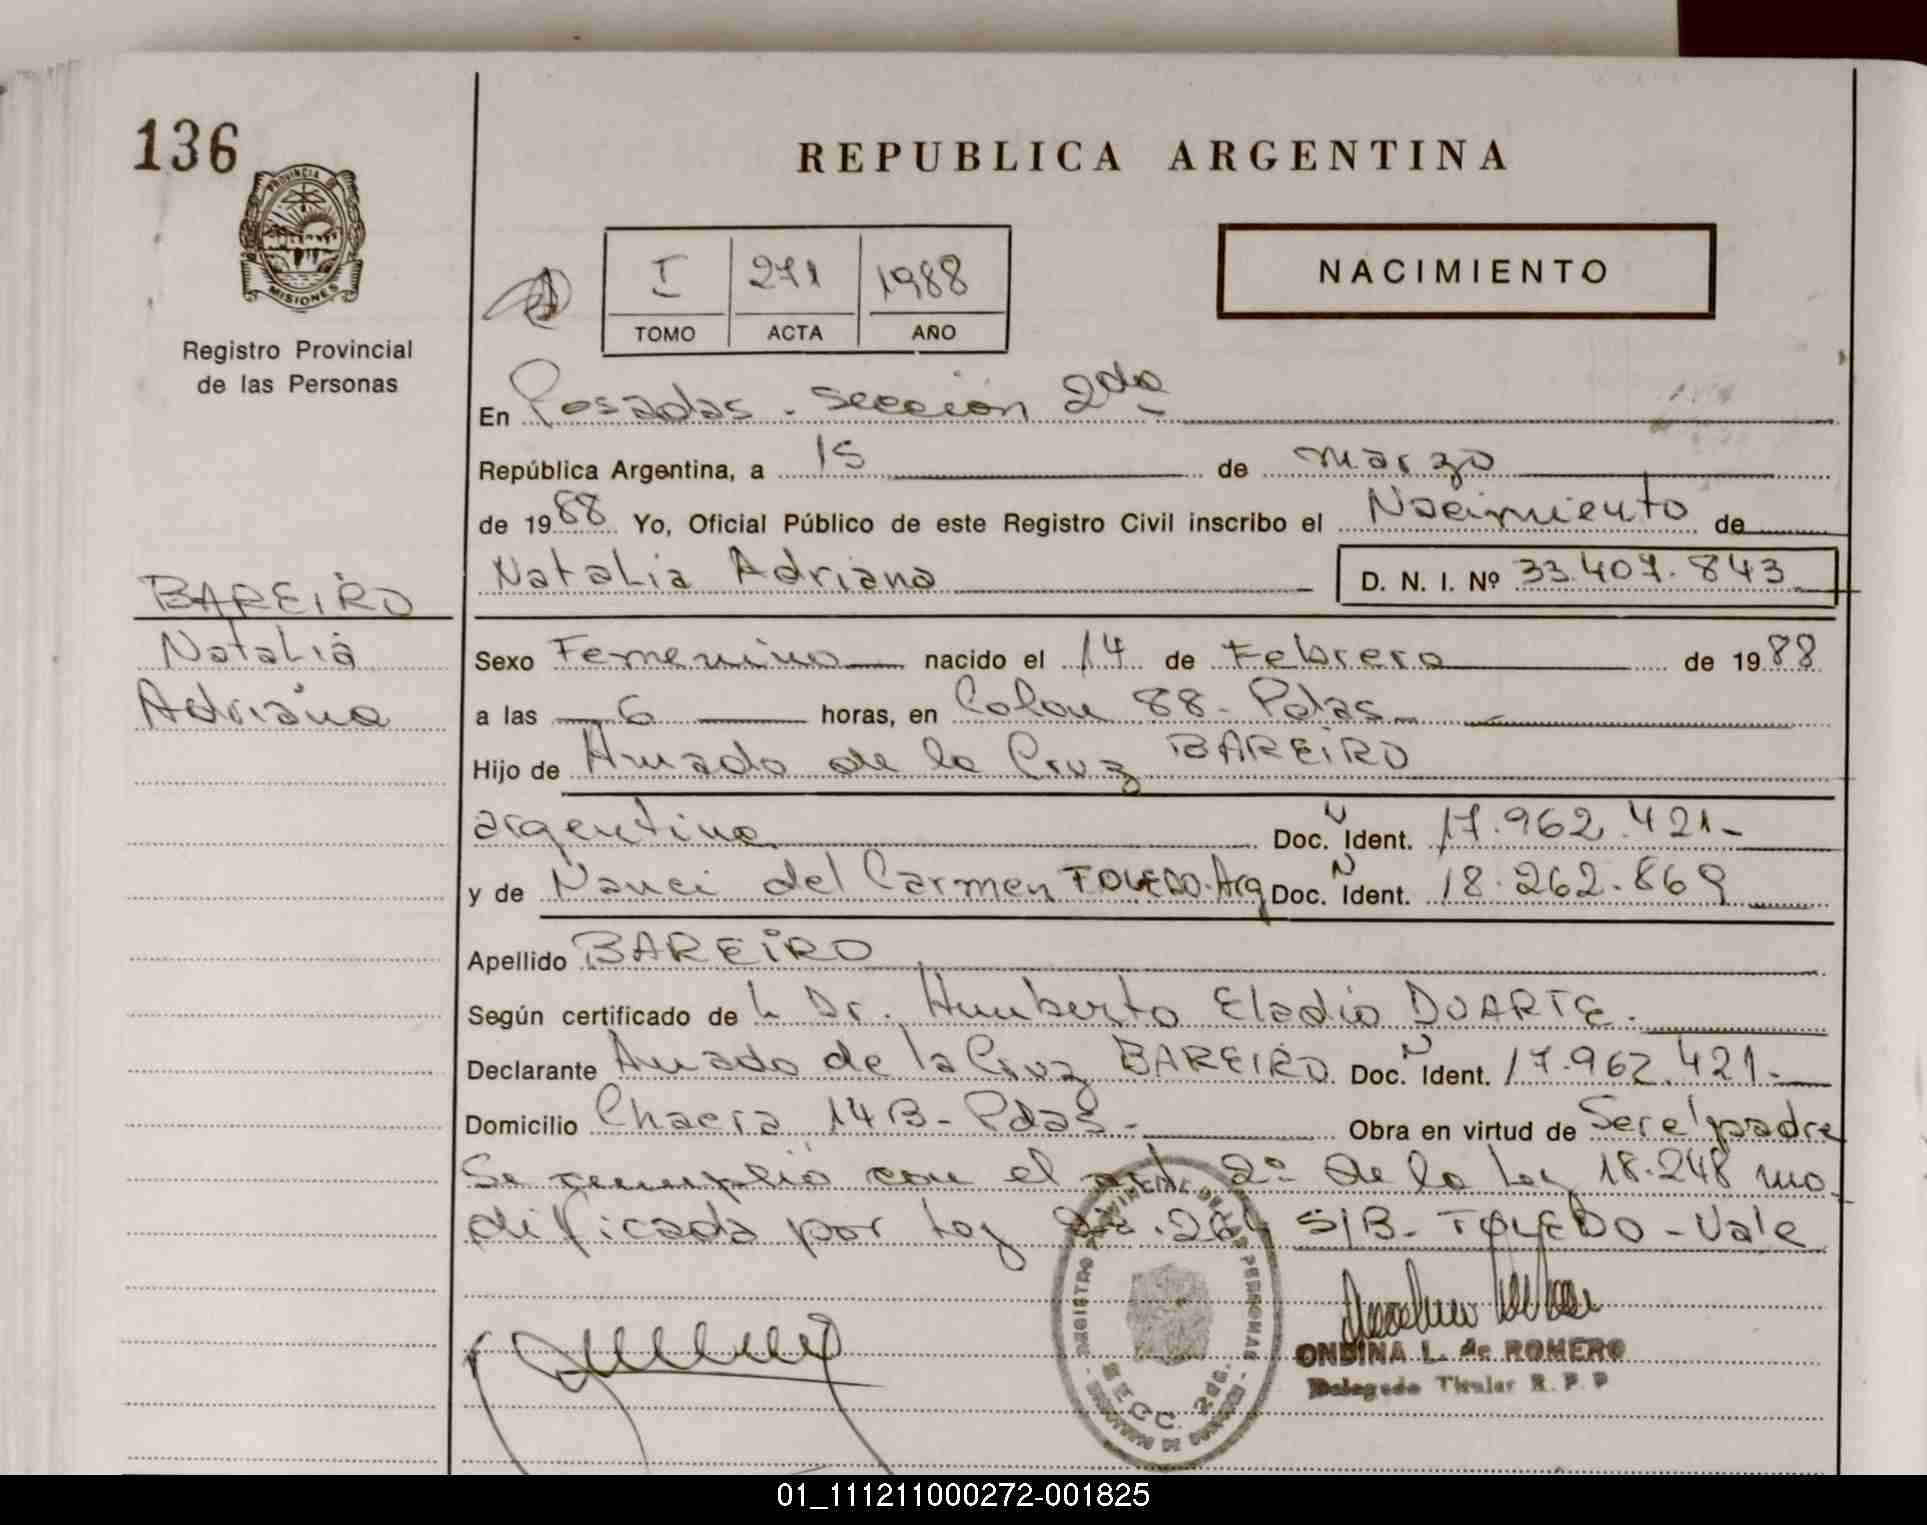 136
PROVINCIA DE
MISIONES
Registro Provincial
de las Personas
REPUBLICA ARGENTINA
I 271 1988
TOMO ACTA AÑO
NACIMIENTO
En Posadas - Sección 2da
República Argentina, a 15 de marzo
de 1988 Yo, Oficial Público de este Registro Civil inscribo el Nacimiento de
Natalia Adriana D. N. I. Nº 33.407.843
BAREIRO
Natalia
Adriana
Sexo Femenino nacido el 14 de Febrero de 1988
a las 6 horas, en Colon 88 - Pdas
Hijo de Amado de la Cruz BAREIRO
argentino Doc. N Ident. 17.962.421-
y de Nanci del Carmen TOLEDO-Arg Doc. N Ident. 18.262.869
Apellido BAREIRO
Según certificado de L Dr. Humberto Eladio DUARTE.
Declarante Amado de la Cruz BAREIRO Doc. N Ident. 17.962.421-
Domicilio Chacra 14B - Pdas - Obra en virtud de Ser el padre
Se cumplió con el art 2º de la Ley 18.248 mo-
dificada por Ley .264 S/B - TOLEDO - Vale
ONDINA L. de ROMERO
Delegado Titular R. P. P
SECC. 2da.
01_111211000272-001825